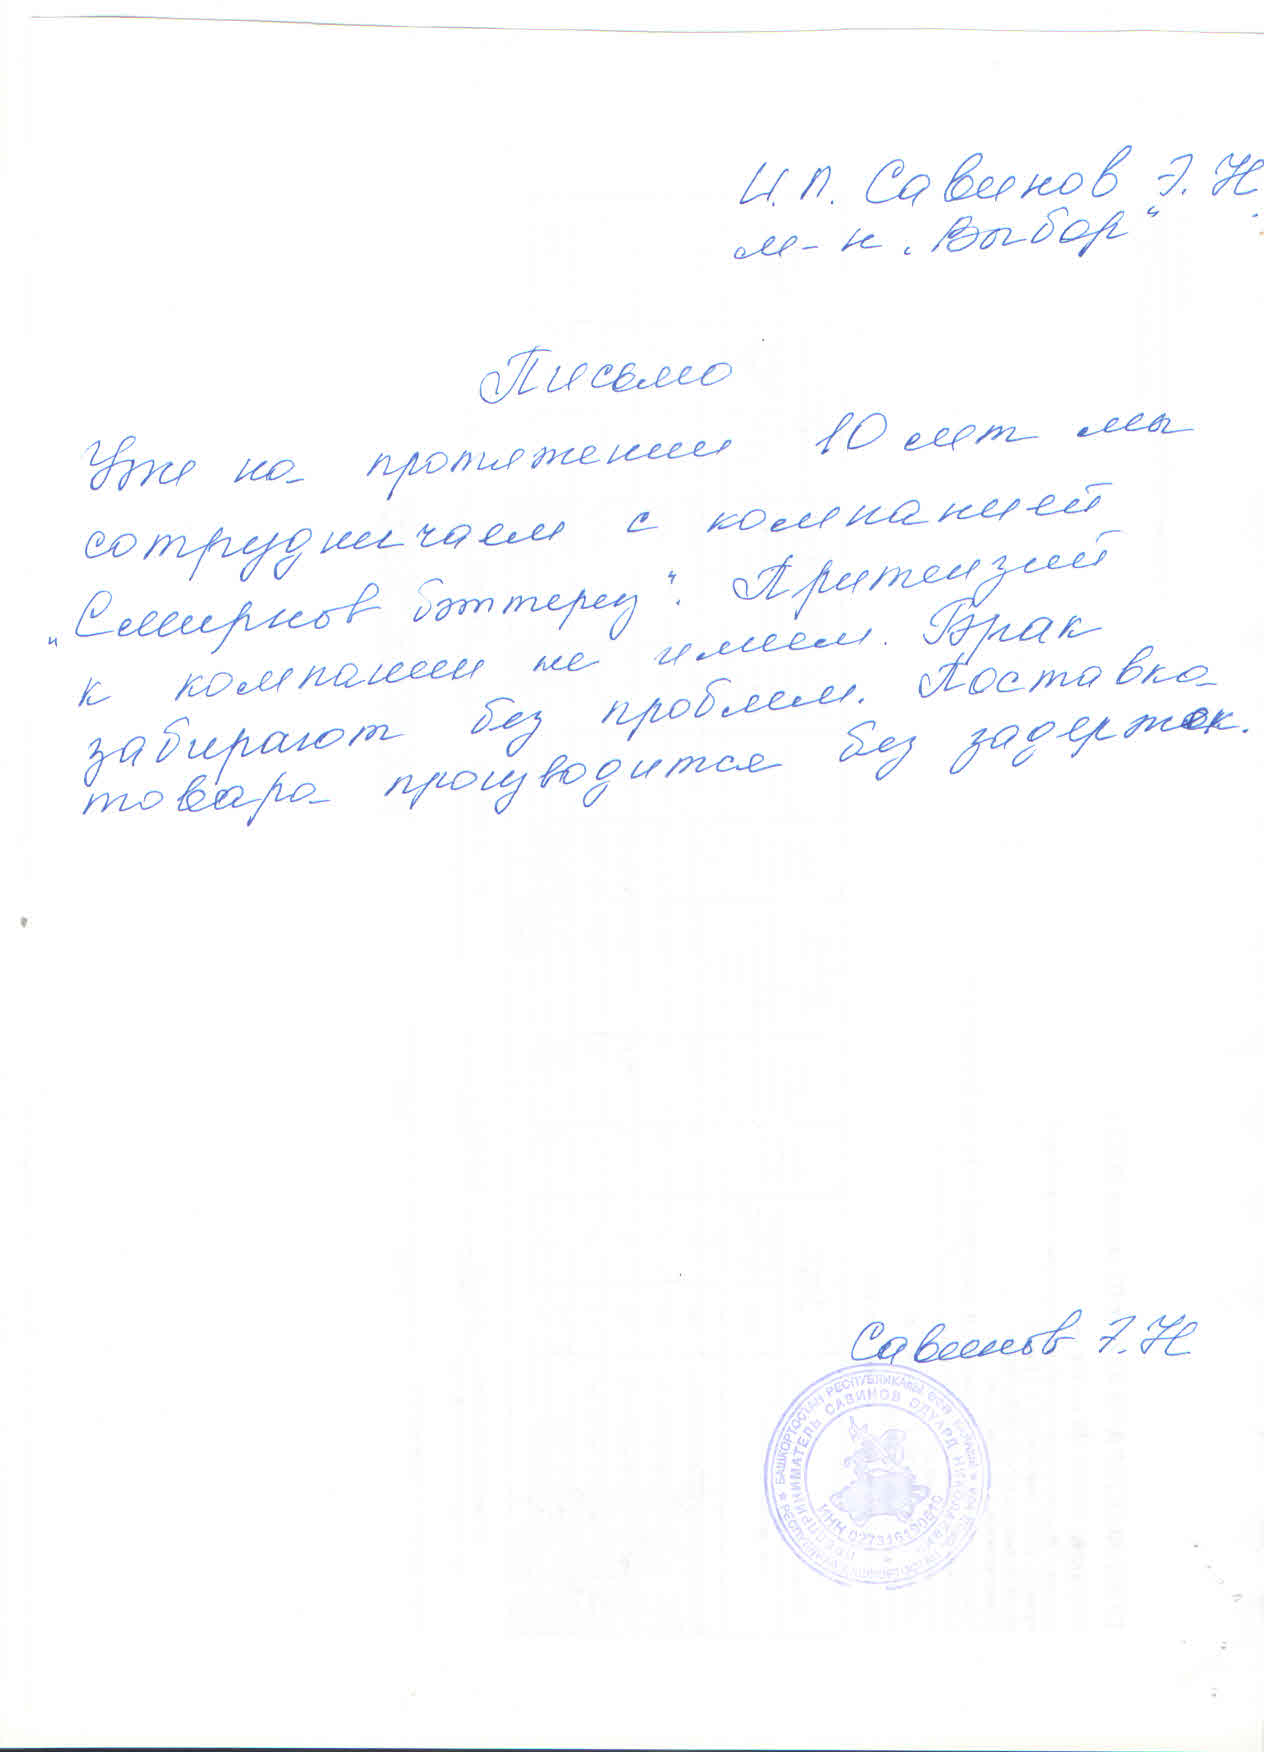 И.П. Савинов Э.Н.
м-н „Выбор"
Письмо
Уже на протяжении 10 лет мы
сотрудничаем с компанией
„Смирнов бэттериз". Притензий
к компании не имеем. Брак
забирают без проблем. Поставка
товара производится без задержек.
Савинов Э.Н
БАШКОРТОСТАН РЕСПУБЛИКАҺЫ ӨФӨ ҠАЛАҺЫ
ПРЕДПРИНИМАТЕЛЬ САВИНОВ ЭДУАРД НИКОЛАЕВИЧ
ИНН